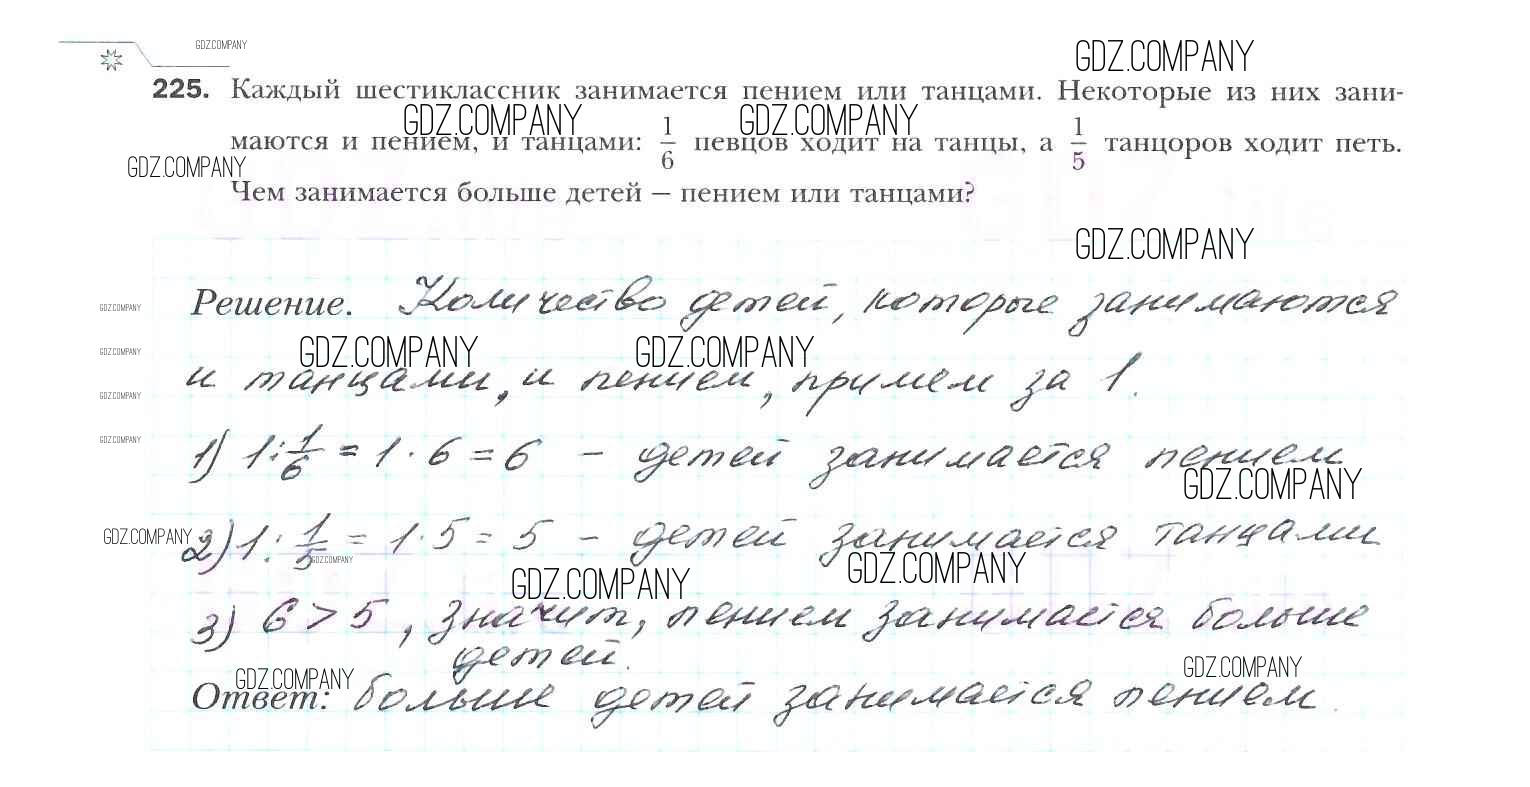 GDZ.COMPANY
GDZ.COMPANY
225. Каждый шестиклассник занимается пением или танцами. Некоторые из них зани-
GDZ.COMPANY GDZ.COMPANY
маются и пением, и танцами: 1/6 певцов ходит на танцы, а 1/5 танцоров ходит петь.
GDZ.COMPANY
Чем занимается больше детей — пением или танцами?
GDZ.COMPANY
Решение. Количество детей, которые занимаются
GDZ.COMPANY
GDZ.COMPANY GDZ.COMPANY GDZ.COMPANY
и танцами, и пением, примем за 1.
GDZ.COMPANY
GDZ.COMPANY
1) 1 : 1/6 = 1 · 6 = 6 – детей занимается пением
GDZ.COMPANY
GDZ.COMPANY
2) 1 : 1/5 = 1 · 5 = 5 – детей занимается танцами
GDZ.COMPANY
GDZ.COMPANY GDZ.COMPANY
3) 6 > 5, значит, пением занимается больше
детей.
GDZ.COMPANY GDZ.COMPANY
Ответ: больше детей занимается пением.